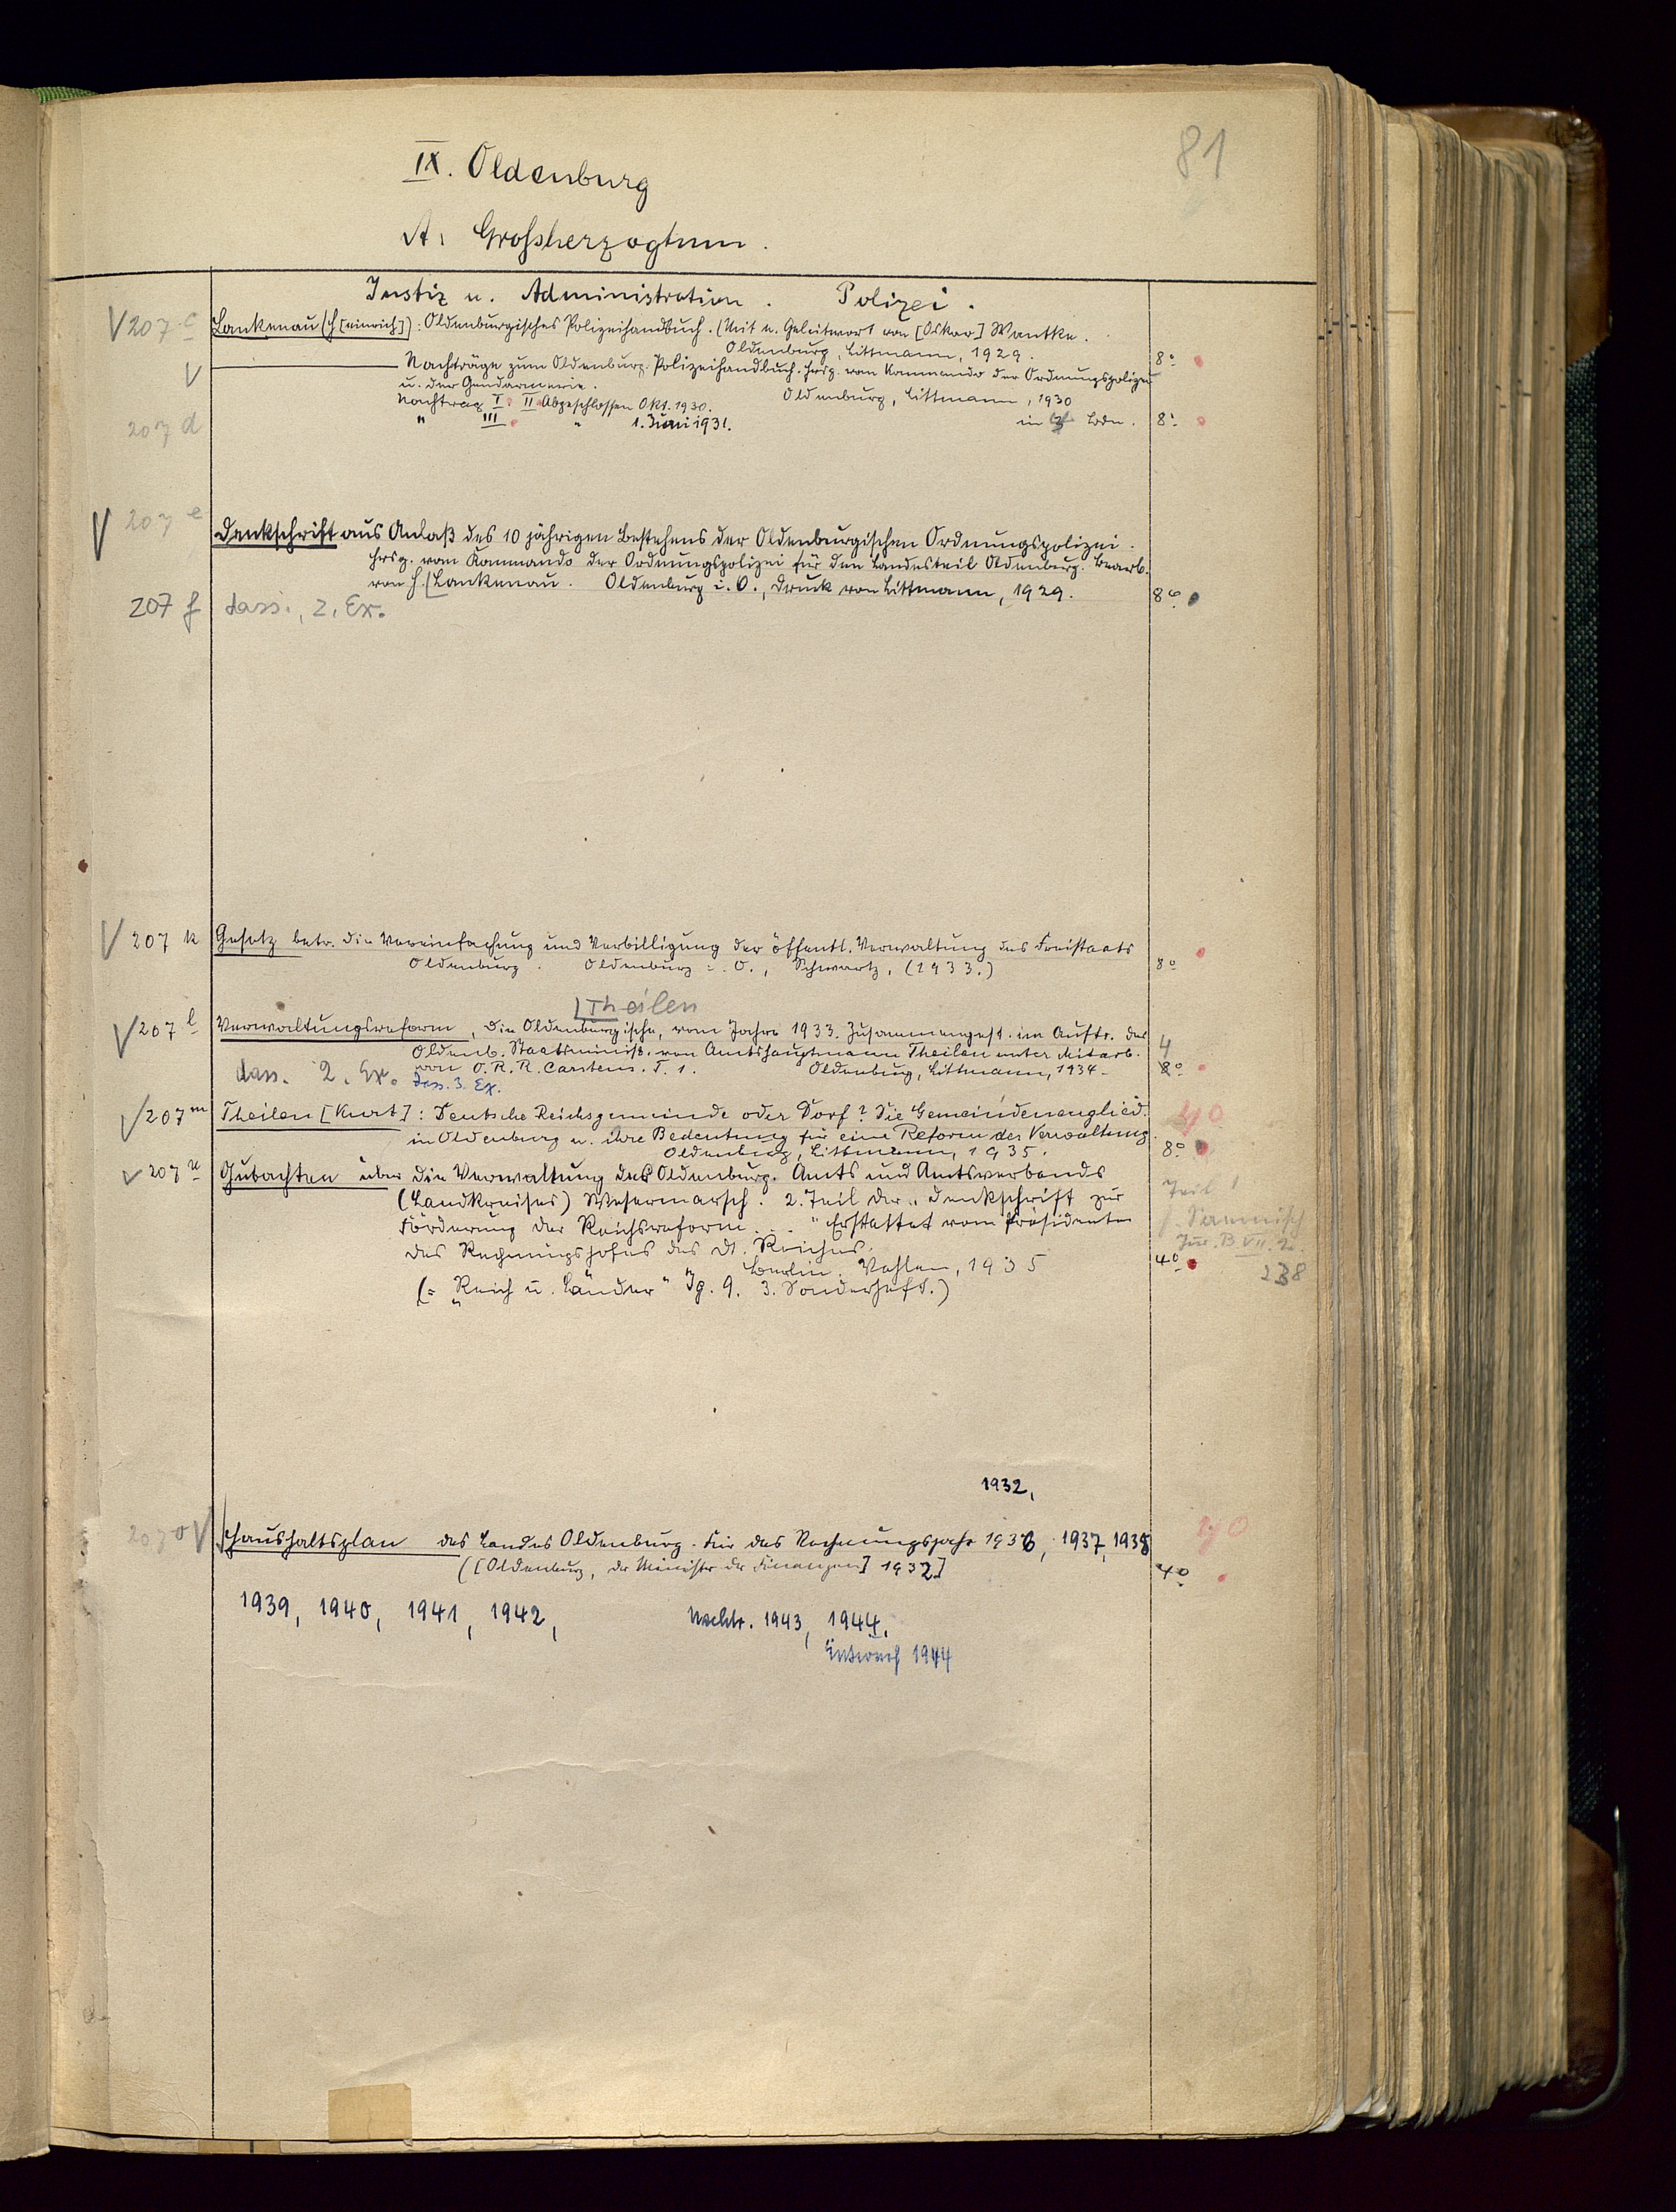 81
IX. Oldenburg
A. Grossherzogtum.
Justiz u. Administration. Polizei.
V 207 c Lankenau (H[einrich]): Oldenburgisches Polizeihandbuch. (Mit e. Geleitwort von [Oskar] Wantke.
Oldenburg, Littmann, 1929. 8º
V ——— Nachträge zum Oldenburg. Polizeihandbuch. Hrsg. vom Kommando der Ordnungspolizei
u. der Gendarmerie. Oldenburg, Littmann, 1930
Nachtrag I. II. Abgeschlossen Okt. 1930.
207 d " III " 1. Juni 1931. in Bdn. 8º
V 207 e Denkschrift aus Anlaß des 10 jährigen Bestehens der Oldenburgischen Ordnungspolizei.
Hrsg. vom Kommando der Ordnungspolizei für den Landesteil Oldenburg. Bearb.
von H. [Lankenau. Oldenburg i. O., Druck von Littmann, 1929. 8º
207 f dass., 2. Ex.
V 207 k Gesetz betr. die Vereinfachung und Verbilligung der öffentl. Verwaltung des Freistaats
Oldenburg. Oldenburg i. O., Schwartz, (1933.) 8º
[Theilen
V 207 l Verwaltungsreform, Die Oldenburgische, vom Jahre 1933. Zusammengest. im Auftr. des
Oldenb. Staatsminist. von Amtshauptmann Theilen unter Mitarb. 4
von O. R. R. Carstens. T. 1. Oldenburg, Littmann, 1934. 8º
dass. 2. Ex. dass. 3. Ex.
V 207 m Theilen [Kurt]: Deutsche Reichsgemeinde oder Dorf? Die Gemeindeneuglied. 40
in Oldenburg u. ihre Bedeutung für eine Reform der Verwaltung.
Oldenburg, Littmann, 1935. 8º
V 207 n Gutachten über die Verwaltung des Oldenburg. Amts und Amtsverbands
(Landkreises) Wesermarsch. 2. Teil der „Denkschrift zur Teil 1
Förderung der Reichsreform . . . " Erstattet vom Präsidenten
des Rechnungshofes des dt. Reiches. Jur. B VII. 2.
Berlin, Vahlen, 1935 4º 238
(= „Reich u. Länder" Jg. 9. 3. Sonderheft.)
1932,
207 o V Haushaltsplan des Landes Oldenburg. Für das Rechnungsjahr 1936, 1937, 1938
([Oldenburg, der Minister der Finanzen] 1932] 4º
1939, 1940, 1941, 1942, Nachtr. 1943, 1944.
Entwurf 1944